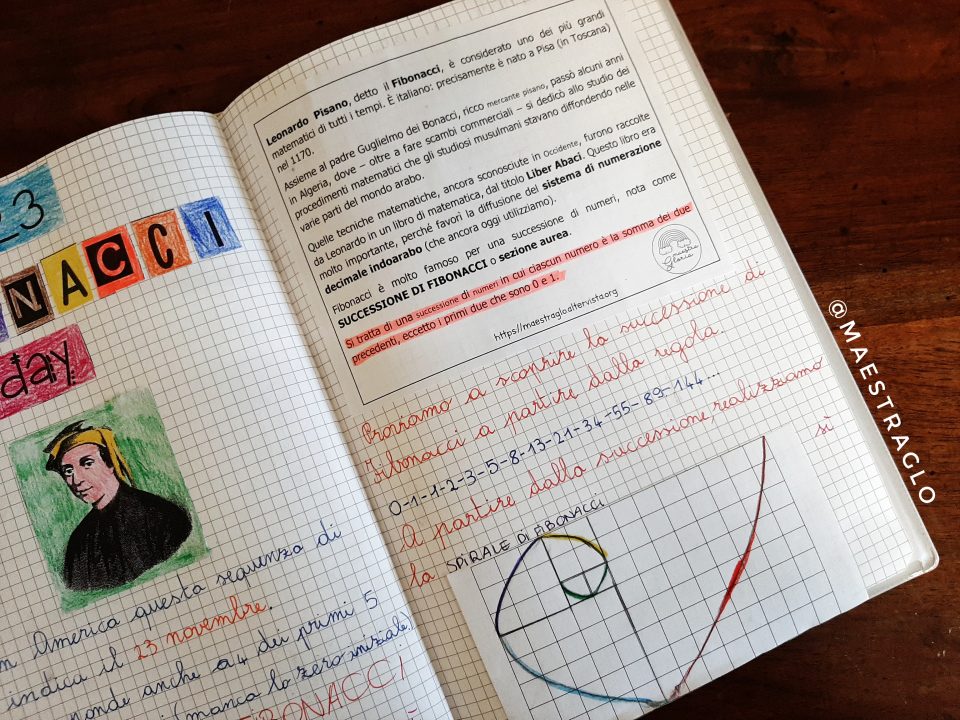 23
NACCI
day
n America questa sequenza di
indica il 23 novembre.
ponde anche a4 dei primi 5
(manca lo zero iniziale)
FIBONACCI
Leonardo Pisano, detto il Fibonacci, è considerato uno dei più grandi
matematici di tutti i tempi. È italiano: precisamente è nato a Pisa (in Toscana)
nel 1170.
Assieme al padre Guglielmo dei Bonacci, ricco mercante pisano, passò alcuni anni
in Algeria, dove – oltre a fare scambi commerciali – si dedicò allo studio dei
procedimenti matematici che gli studiosi musulmani stavano diffondendo nelle
varie parti del mondo arabo.
Quelle tecniche matematiche, ancora sconosciute in Occidente, furono raccolte
da Leonardo in un libro di matematica, dal titolo Liber Abaci. Questo libro era
molto importante, perché favorì la diffusione del sistema di numerazione
decimale indoarabo (che ancora oggi utilizziamo).
Fibonacci è molto famoso per una successione di numeri, nota come
SUCCESSIONE DI FIBONACCI o sezione aurea.
Si tratta di una successione di numeri in cui ciascun numero è la somma dei due
precedenti, eccetto i primi due che sono 0 e 1.
maestra
Gloria
https://maestraglo.altervista.org
Proviamo a scoprire la successione di
Fibonacci a partire dalla regola.
0-1-1-2-3-5-8-13-21-34-55-89-144...
A partire dalla successione, realizziamo
la SPIRALE DI FIBONACCI
sì
@MAESTRAGLO